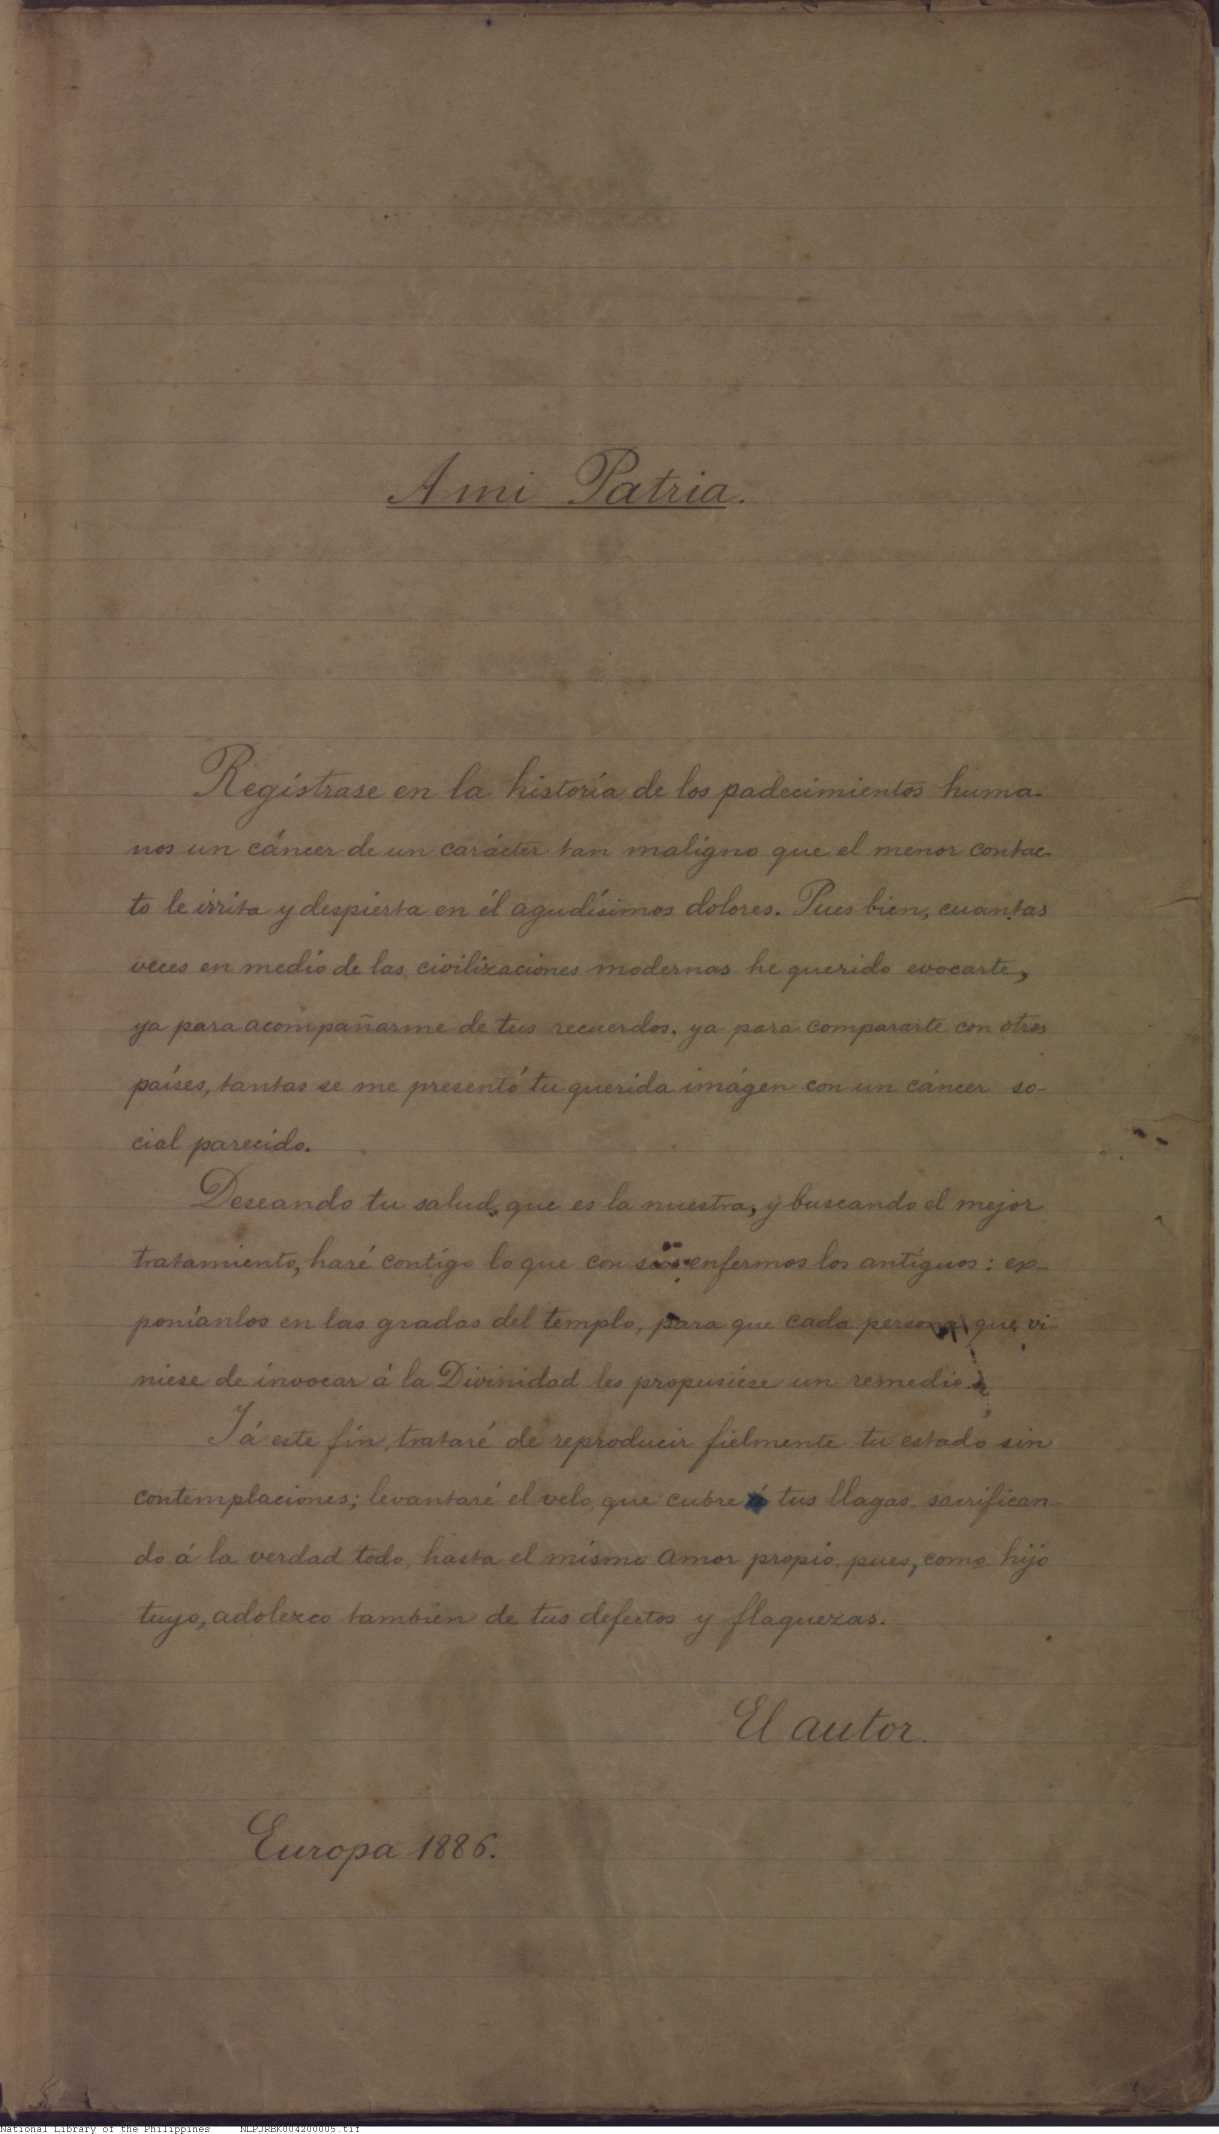 A mi Patria.
Regístrase en la historia de los padecimientos huma-
nos un cáncer de un carácter tan maligno que el menor contac-
to le irrita y despierta en él agudísimos dolores. Pues bien, cuantas
veces en medio de las civilizaciones modernas he querido evocarte,
ya para acompañarme de tus recuerdos, ya para compararte con otros
países, tantas se me presentó tu querida imágen con un cáncer so-
cial parecido.
Deseando tu salud, que es la nuestra, y buscando el mejor
tratamiento, haré contigo lo que con sus enfermos los antiguos: ex-
poníanlos en las gradas del templo, para que cada persona que vi-
niese de invocar á la Divinidad les propusiese un remedio.
Y á este fin, trataré de reproducir fielmente tu estado sin
contemplaciones; levantaré el velo que cubre á tus llagas sacrifican-
do á la verdad todo, hasta el mismo amor propio, pues, como hijo
tuyo, adolezco tambien de tus defectos y flaquezas.
El autor.
Europa 1886.
National Library of the Philippines NLPJRBK004200005.tif